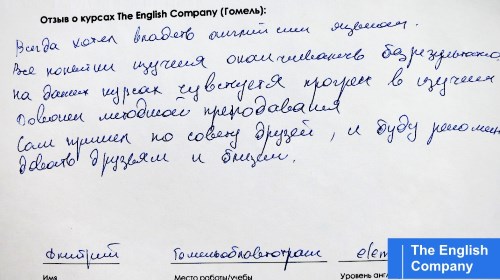 Отзыв о курсах The English Company (Гомель):
Всегда хотел владеть английским языком.
Все попытки изучения оканчивались безрезультатно,
на данных курсах чувствуется прогресс в изучении
Доволен методикой преподавания
Сам пришел по совету друзей, и буду рекомен
довать друзьям и близким.
Дмитрий Гомельоблавтотранс elem
Имя Место работы/учебы Уровень анг
The English
Company